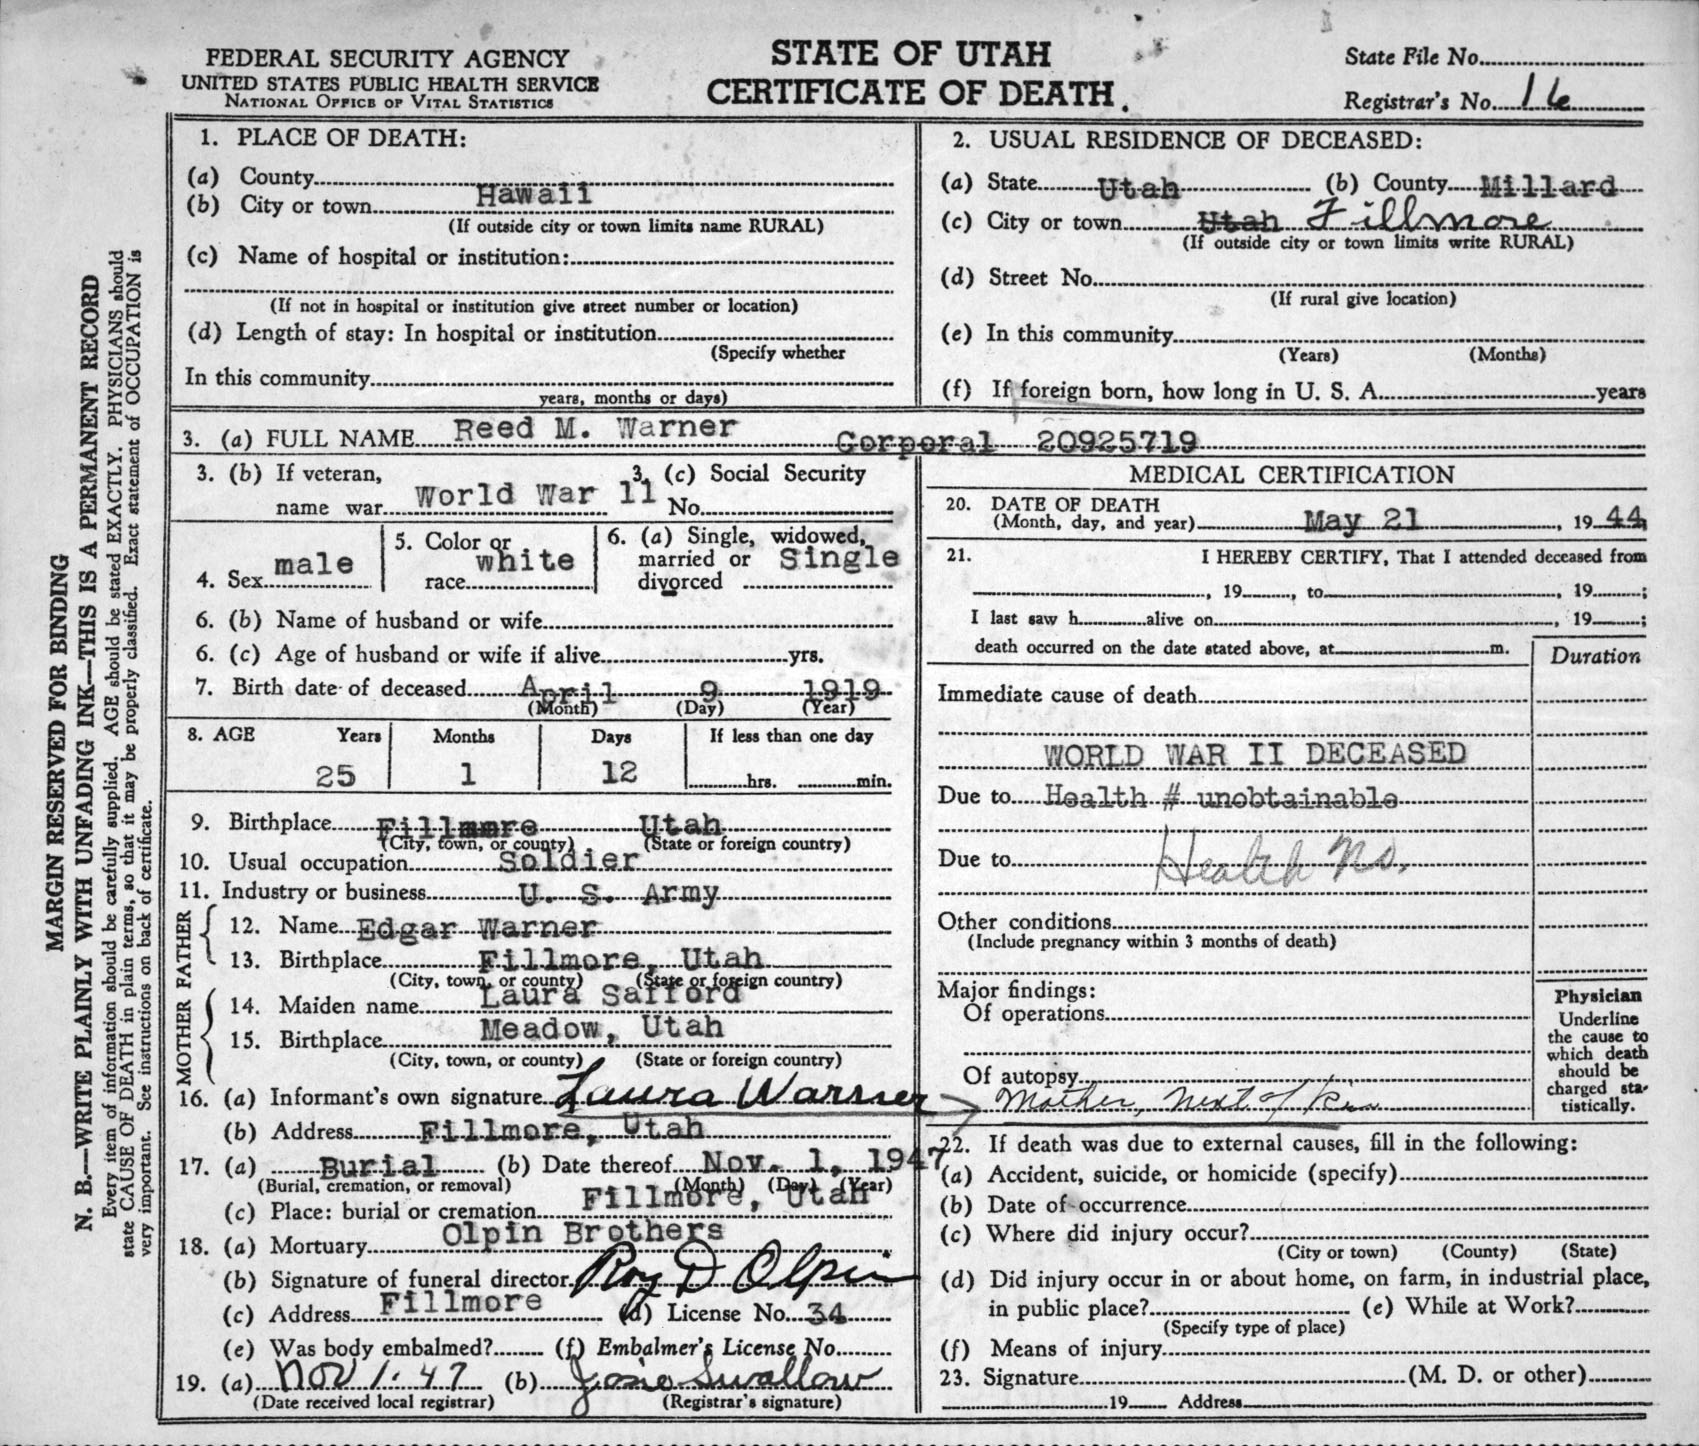 FEDERAL SECURITY AGENCY
UNITED STATES PUBLIC HEALTH SERVICE
NATIONAL OFFICE OF VITAL STATISTICS
STATE OF UTAH
CERTIFICATE OF DEATH.
State File No.
Registrar's No. 16
MARGIN RESERVED FOR BINDING
N. B.—WRITE PLAINLY WITH UNFADING INK—THIS IS A PERMANENT RECORD
Every item of information should be carefully supplied. AGE should be stated EXACTLY. PHYSICIANS should
state CAUSE OF DEATH in plain terms, so that it may be properly classified. Exact statement of OCCUPATION is
very important. See instructions on back of certificate.
1. PLACE OF DEATH:
(a) County
Hawaii
(b) City or town
(If outside city or town limits name RURAL)
(c) Name of hospital or institution:
(If not in hospital or institution give street number or location)
(d) Length of stay: In hospital or institution
(Specify whether
In this community
years, months or days)
2. USUAL RESIDENCE OF DECEASED:
(a) State Utah (b) County Millard
(c) City or town Utah Fillmore
(If outside city or town limits write RURAL)
(d) Street No.
(If rural give location)
(e) In this community
(Years) (Months)
(f) If foreign born, how long in U. S. A. years
3. (a) FULL NAME Reed M. Warner Corporal 20925719
3. (b) If veteran,
name war World War 11
3. (c) Social Security
No.
4. Sex male
5. Color or
race white
6. (a) Single, widowed,
married or
divorced Single
6. (b) Name of husband or wife
6. (c) Age of husband or wife if alive yrs.
7. Birth date of deceased April 9 1919
(Month) (Day) (Year)
8. AGE Years Months Days If less than one day
25 1 12 hrs. min.
9. Birthplace Fillmore Utah
(City, town, or county) (State or foreign country)
10. Usual occupation Soldier
11. Industry or business U. S. Army
FATHER
12. Name Edgar Warner
13. Birthplace Fillmore, Utah
(City, town, or county) (State or foreign country)
MOTHER
14. Maiden name Laura Safford
15. Birthplace Meadow, Utah
(City, town, or county) (State or foreign country)
16. (a) Informant's own signature Laura Warner
(b) Address Fillmore, Utah
17. (a) Burial (b) Date thereof Nov. 1, 1947
(Burial, cremation, or removal) (Month) (Day) (Year)
(c) Place: burial or cremation Fillmore, Utah
18. (a) Mortuary Olpin Brothers
(b) Signature of funeral director Roy D Olpin
(c) Address Fillmore (d) License No. 34
(e) Was body embalmed? (f) Embalmer's License No.
19. (a) Nov 1. 47 (b) Josie Swallow
(Date received local registrar) (Registrar's signature)
MEDICAL CERTIFICATION
20. DATE OF DEATH
(Month, day, and year) May 21, 1944
21. I HEREBY CERTIFY, That I attended deceased from
, 19, to , 19;
I last saw h alive on , 19;
death occurred on the date stated above, at m.
Duration
Immediate cause of death
WORLD WAR II DECEASED
Due to Health # unobtainable
Due to Health No.
Other conditions
(Include pregnancy within 3 months of death)
Major findings:
Of operations
Of autopsy
Mother, next of kin
Physician
Underline
the cause to
which death
should be
charged sta-
tistically.
22. If death was due to external causes, fill in the following:
(a) Accident, suicide, or homicide (specify)
(b) Date of occurrence
(c) Where did injury occur?
(City or town) (County) (State)
(d) Did injury occur in or about home, on farm, in industrial place,
in public place? (e) While at Work?
(Specify type of place)
(f) Means of injury
23. Signature (M. D. or other)
19 Address